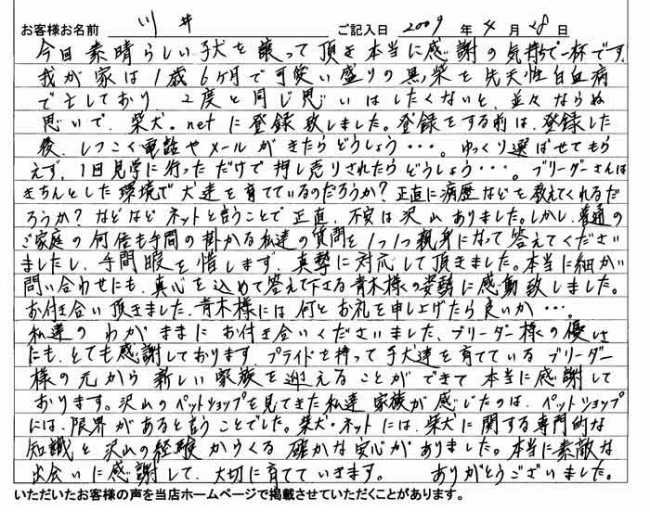 お客様お名前 川井 ご記入日 2009 年 4 月 28 日
今日素晴らしい子犬を譲って頂き本当に感謝の気持ちで一杯です。
我が家は1歳6ヶ月で可愛い盛りの黒柴を先天性白血病
で亡しており、2度と同じ思いはしたくないと、並々ならぬ
思いで、柴犬。netに登録致しました。登録をする前は、登録した
後、しつこく電話やメールがきたらどうしょう・・・。ゆっくり選ばせてもら
えず、1日見学に行っただけで押し売りされたらどうしょう・・・。ブリーダーさんは
きちんとした環境で犬達を育てているのだろうか?正直に病歴などを教えてくれるだ
ろうか?などなどネットと言うことで正直、不安は沢山ありました。しかし、普通の
ご家庭の何倍も手間の掛かる私達の質問を1つ1つ親身になって答えてくださ
いましたし、手間暇を惜しまず、真摯に対応して頂きました。本当に細かい
問い合わせにも、真心を込めて答えて下さる青木様の姿勢に感動致しました。
お付き合い頂きました、青木様には何とお礼を申し上げたら良いか・・・。
私達のわがままにお付き合いくださいました、ブリーダー様の優しさ
にも、とても感謝しております。プライドを持って子犬達を育てているブリーダー
様の元から新しい家族を迎えることができて本当に感謝して
おります。沢山のペットショップを見てきた私達家族が感じたのは、ペットショップ
には、限界があると言うことでした。柴犬・ネットには、柴犬に関する専門的な
知識と沢山の経験からくる確かな安心がありました。本当に素敵な
出会いに感謝して、大切に育てていきます。 ありがとうございました。
いただいたお客様の声を当店ホームページで掲載させていただくことがあります。